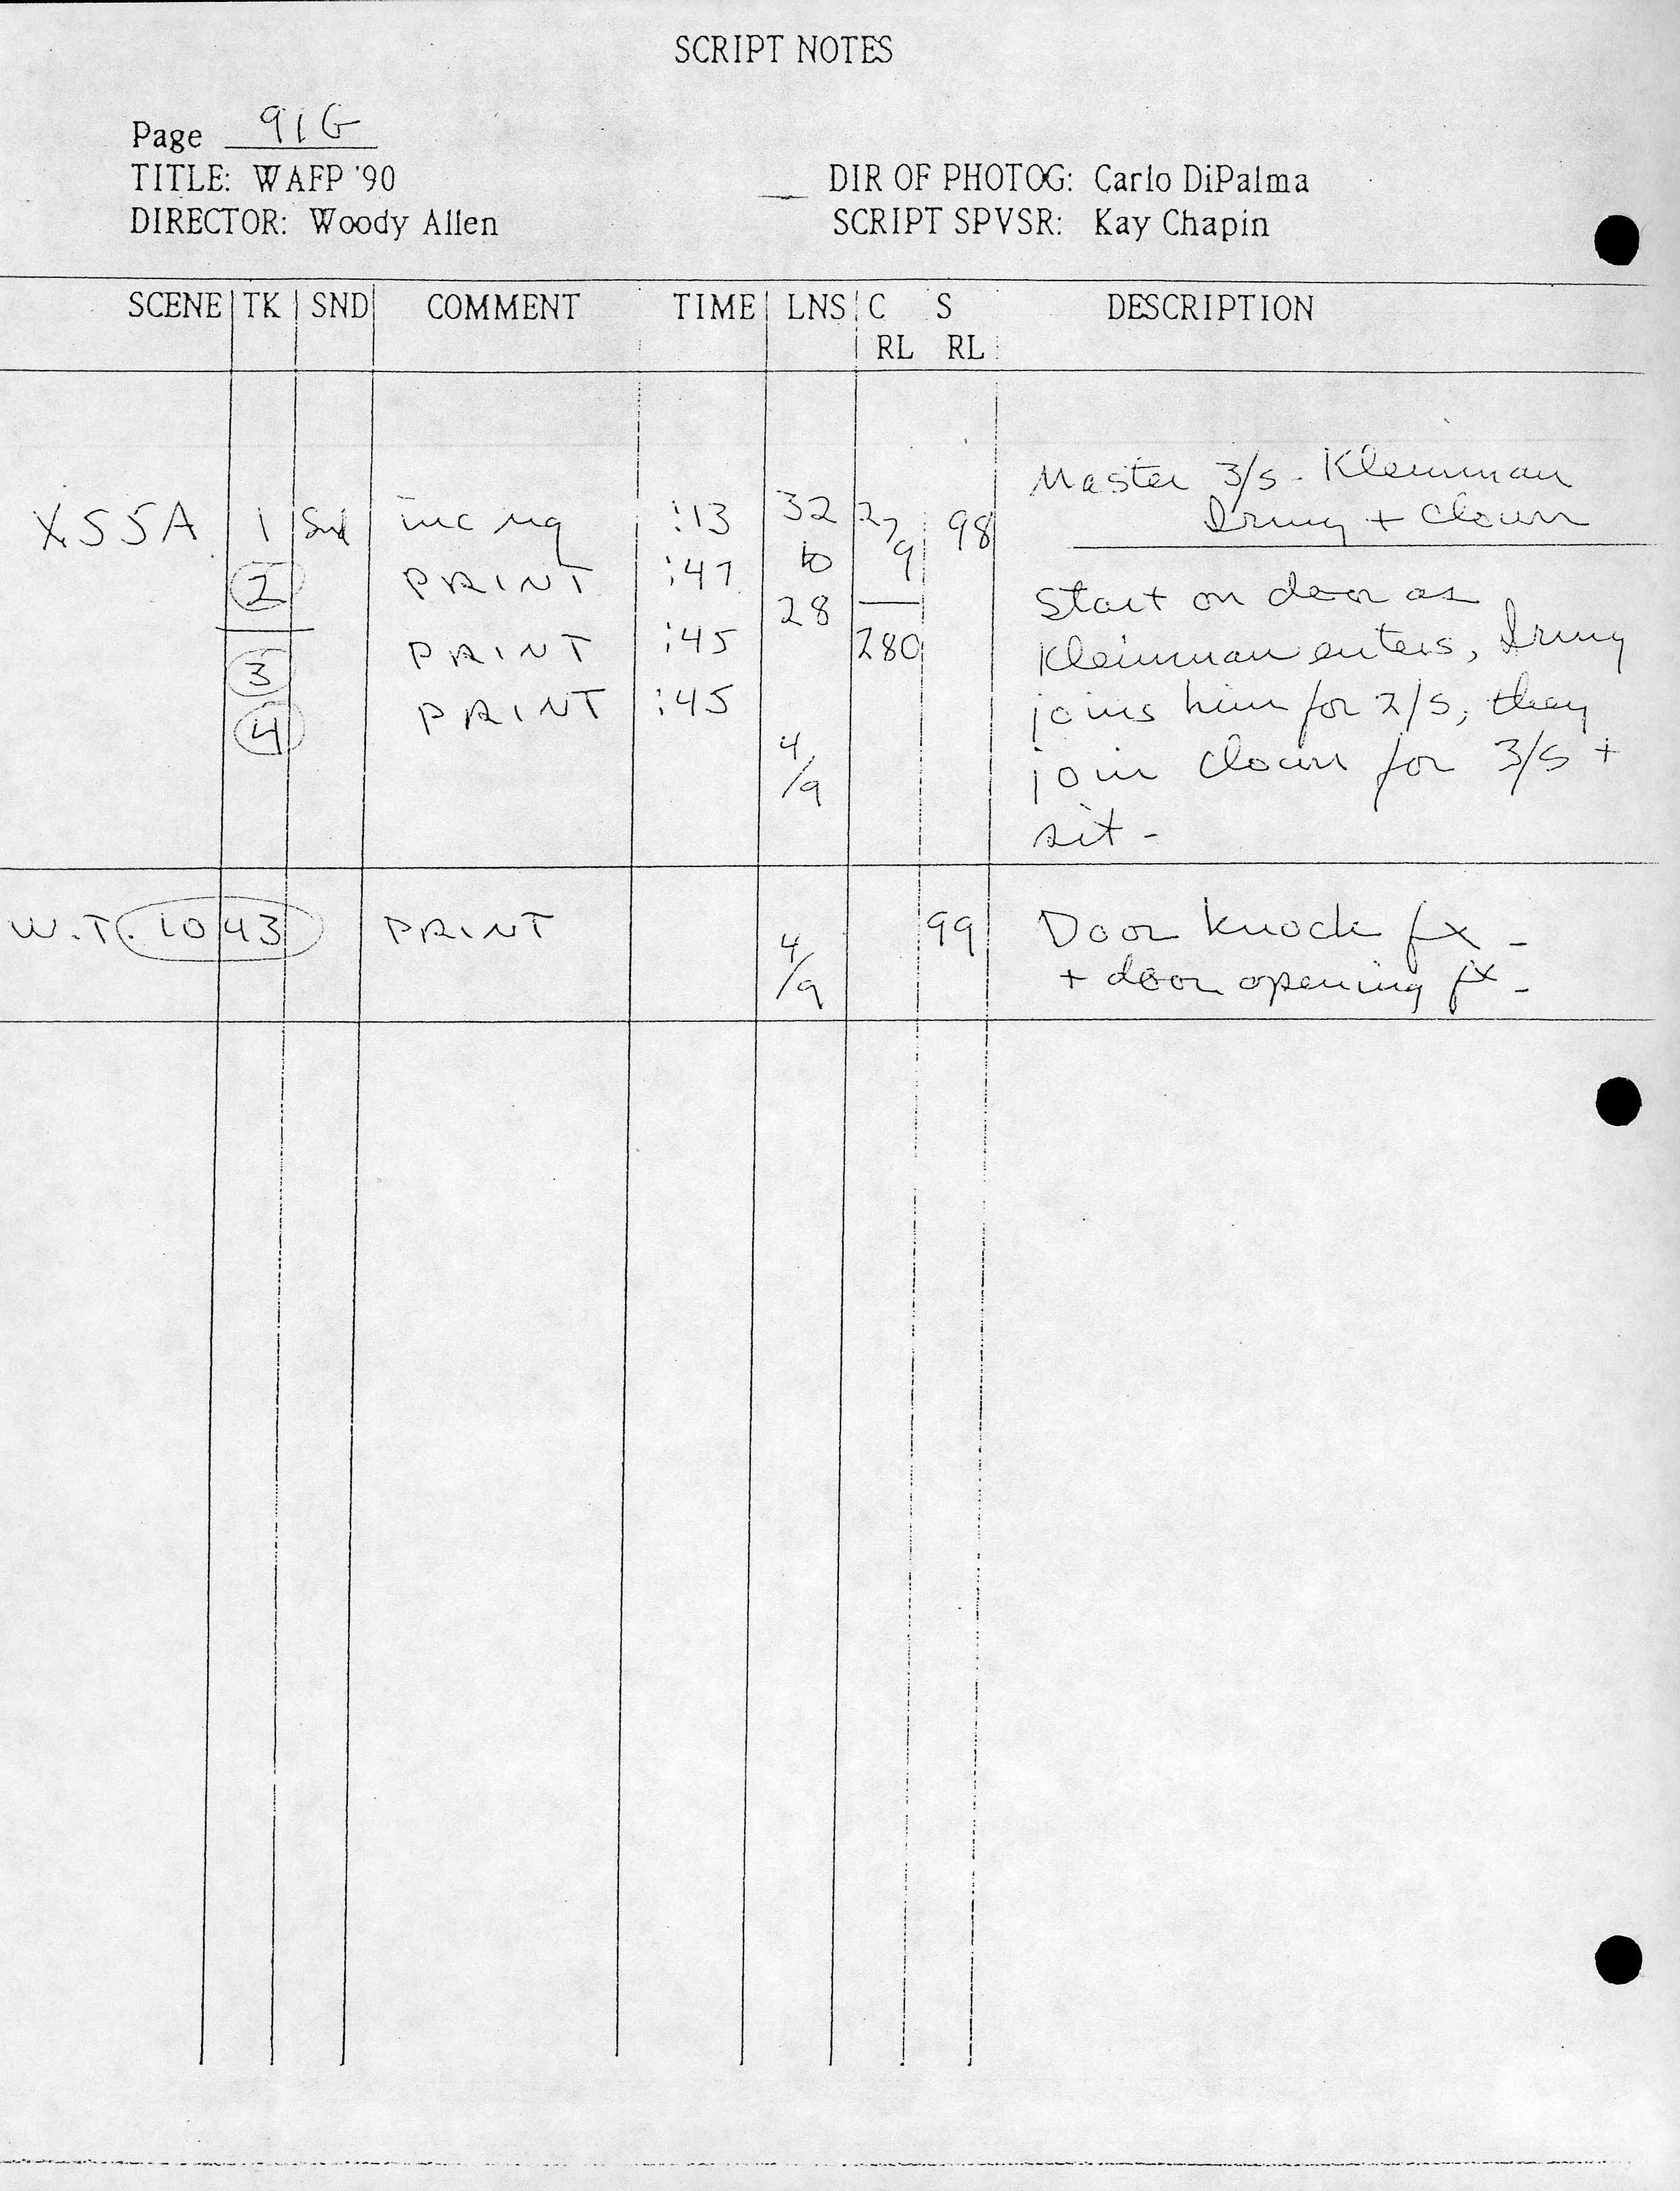 SCRIPT NOTES
Page 91G
TITLE: WAFP '90
DIR OF PHOTOG: Carlo DiPalma
DIRECTOR: Woody Allen
SCRIPT SPVSR: Kay Chapin
SCENE TK SND COMMENT TIME LNS C S DESCRIPTION
RL RL
Master 3/s - Kleinman
X55A 1 Snd inc ng :13 32 279 98 Irmy + Clown
2 PRINT :47 to
Start on door as
28
3 PRINT :45 280 Kleinman enters, Irmy
4 PRINT :45 joins him for 2/s, they
4/9 join Clown for 3/s +
sit -
W.T. 1043 PRINT 4/9 99 Door knock fx -
+ door opening fx -